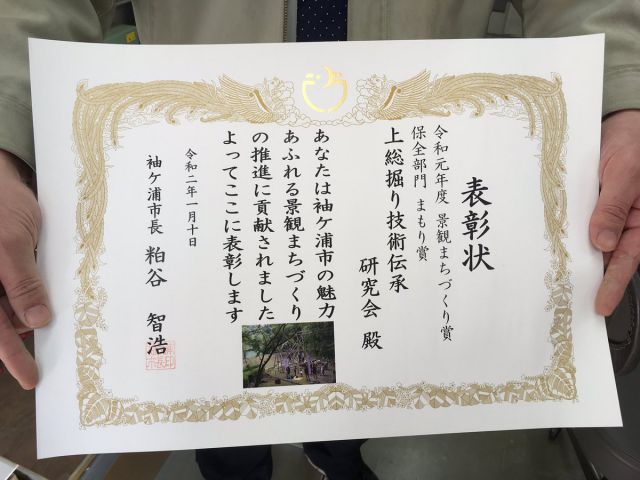 表彰状
令和元年度 景観まちづくり賞
保全部門 まもり賞
上総掘り技術伝承
研究会 殿
あなたは袖ケ浦市の魅力
あふれる景観まちづくり
の推進に貢献されました
よってここに表彰します
令和二年一月十日
袖ケ浦市長 粕谷 智浩